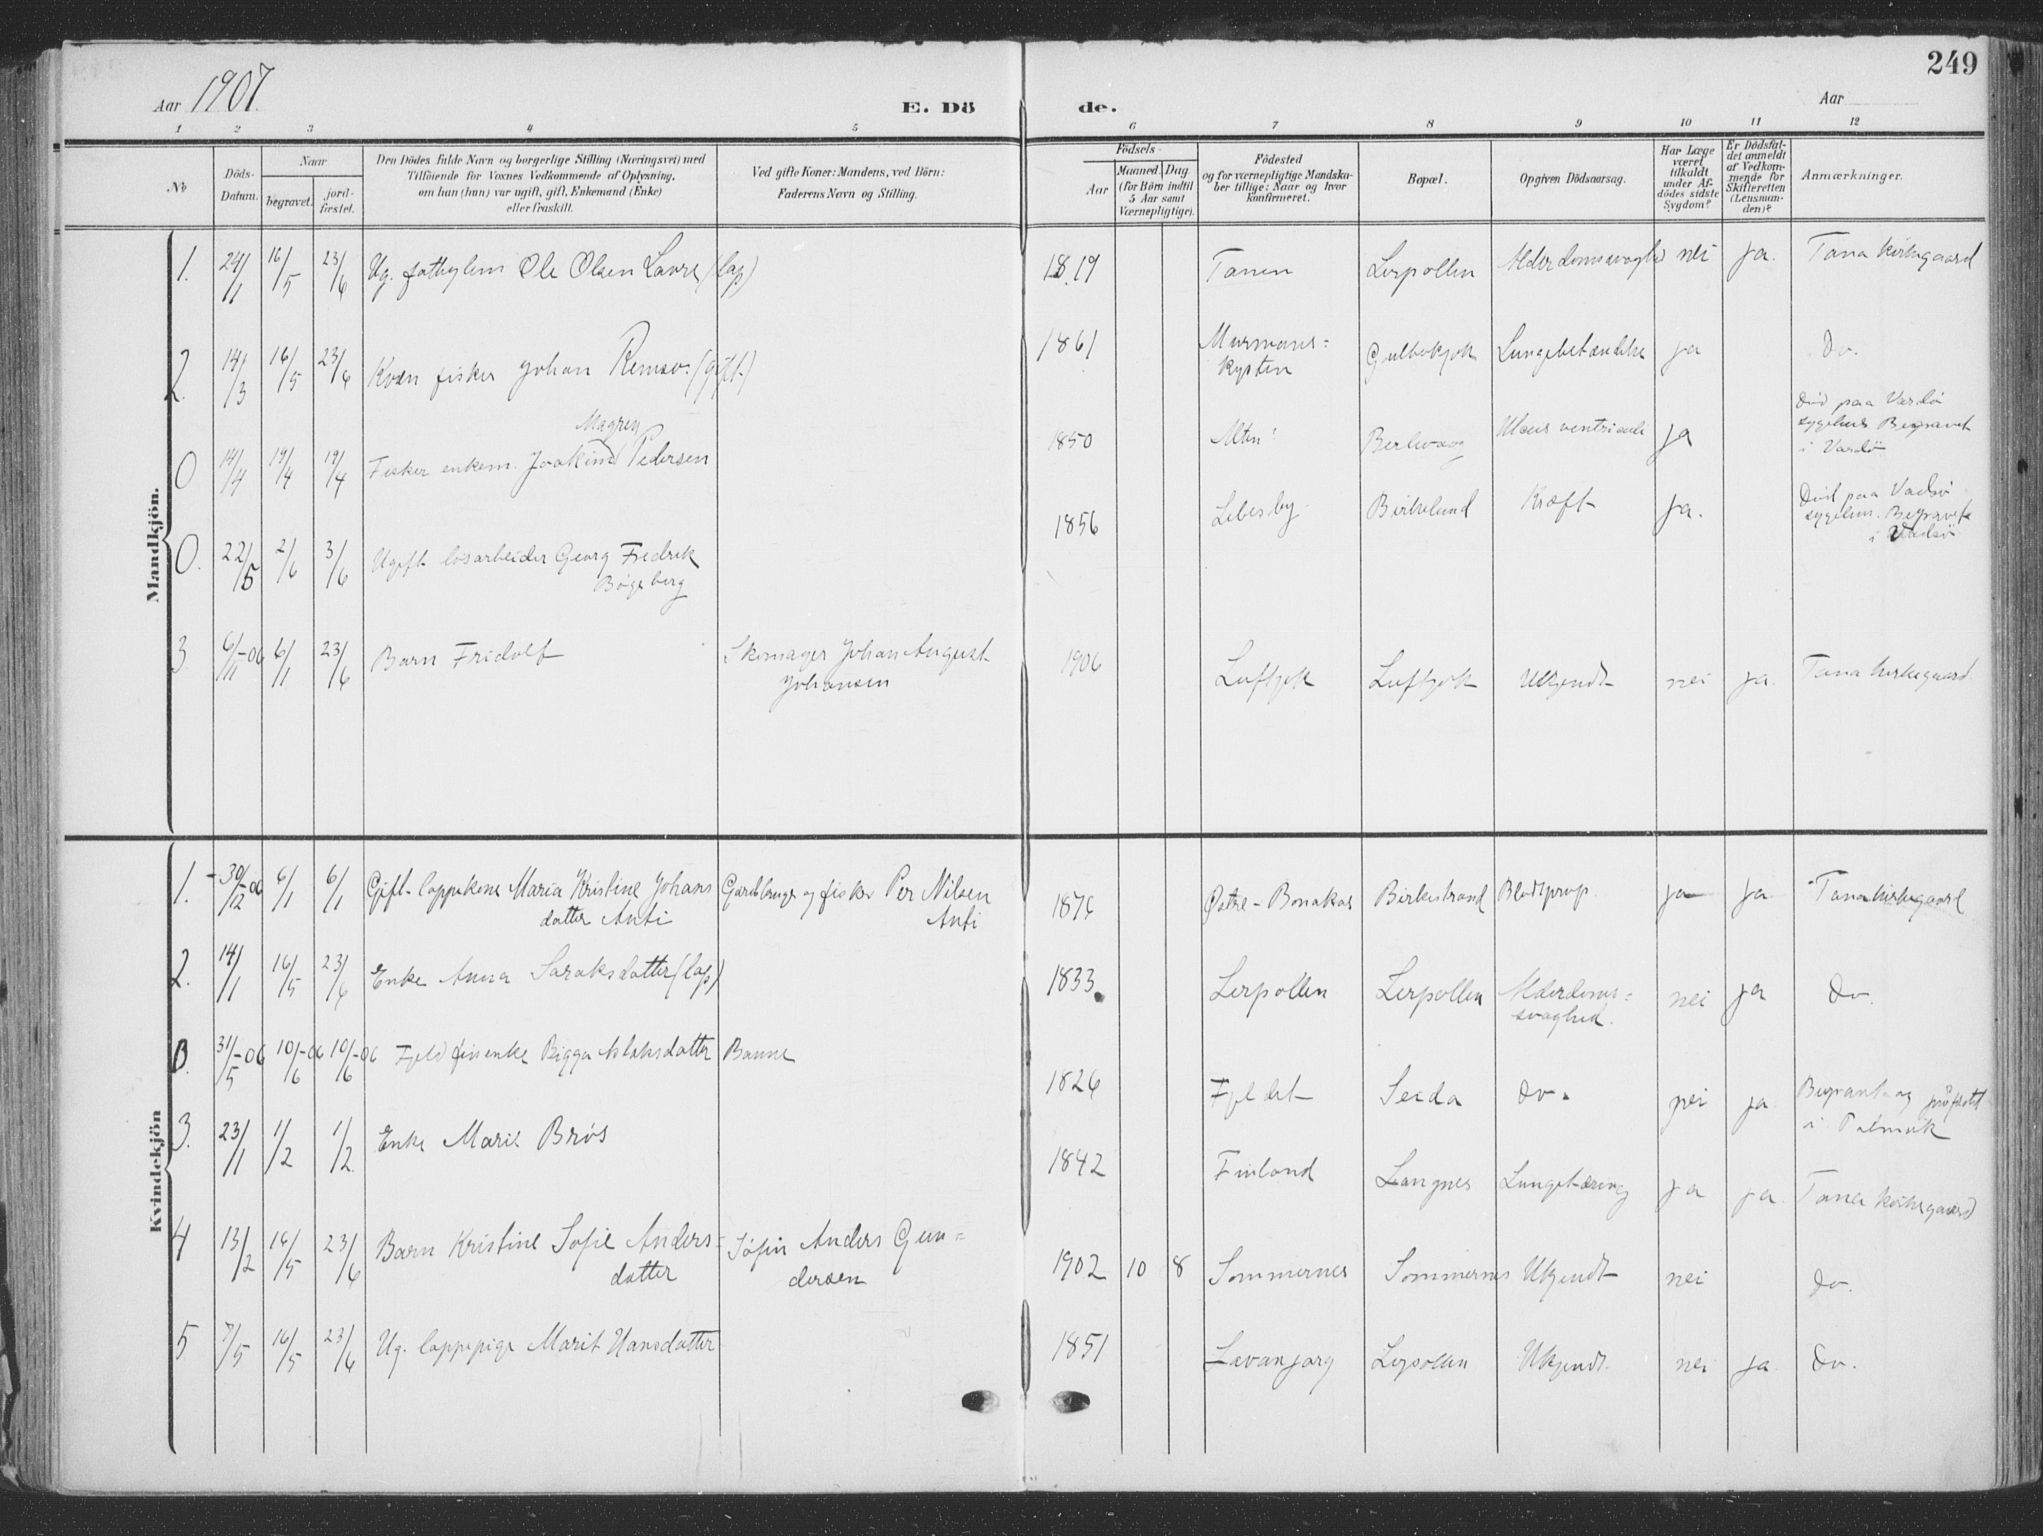 Aar 1907.
E. Dö
de.
Aar
249
1 2 3 4 5 6 7 8 9 10 11 12
No
Döds-
Datum.
Naar
begravet.
jord-
fæstet.
Den Dödes fulde Navn og borgerlige Stilling (Næringsvei) med
Tilföiende for Voxnes Vedkommende af Oplysning,
om han (hun) var ugift, gift, Enkemand (Enke)
eller fraskilt.
Ved gifte Koner: Mandens, ved Börn:
Faderens Navn og Stilling.
Födsels-
Aar
Maaned. Dag
(for Börn indtil
5 Aar samt
Værnepligtige).
Födested
og for værnepligtige Mandska-
ber tillige: Naar og hvor
konfirmeret.
Bopæl.
Opgiven Dödsaarsag.
Har Læge
været
tilkaldt
under Af-
dödes sidste
Sygdom?
Er Dödsfal-
det anmeldt
af Vedkom-
mende for
Skifteretten
(Lensman-
den)?
Anmærkninger.
Mandkjön.
1. 24/1 16/5 23/6 Ug. Ole Olsen Lavre (lap) 1819 Tanen Lerpollen nei ja. Tana kirkegaard
2. 14/3 16/5 23/6 Kvæn fisker Johan (gift) 1861 Murmans=
kysten Lungebetændelse ja Do.
0 14/4 19/4 19/4 Fisker enkem. Joakim Magrey Pedersen 1850 Alten Berlevaag Ulcus ventriculi ja Död paa Vardö
sygehus Begravet
i Vardö
0. 22/5 2/6 3/6 Ugift lösarbeider Georg Fredrik
Bögeberg 1856 Lebesby Birkelund Kræft ja. Död paa Vadsö
sygehus. Begravet
i Vadsö
3 6/11-06 6/1 23/6 Barn Fridolf Skomager Johan August
Johansen 1906 Luftjok Luftjok Ukjendt nei ja. Tana kirkegaard
Kvindekjön
1. 30/12-06 6/1 6/1 Gift lappekone Maria Kristine Johans
datter Anti Gardbruger og fisker Per Nilsen
Anti 1876 Østre-Bonakas Birkestrand Blodprop. ja ja. Tana kirkegaard
2. 14/1 16/5 23/6 Enke Anna Saraksdatter (lap) 1833. Lerpollen Lerpollen Alderdoms=
svaghed. nei ja Do.
0. 31/5-06 10/6-06 10/6-06 Fjeldfinenke Bigga Aslaksdatter Banne 1826 Fjeldet Seida do. nei ja. Begravet og jordfæstet
i Polmak
3. 23/1 1/2 1/2 Enke Marie Brøs 1842 Finland Langnes Lungetæring ja ja. Tana kirkegaard
4 13/2 16/5 23/6 Barn Kristine Sofie Anders=
datter Søfin Anders Gun=
dersen 1902 10 8 Sommernes Sommernes Ukjendt nei do.
5 7/5 16/5 23/6 Ug. lappepige Marit Hansdatter 1851 Lavanjarg Lerpollen Ukjendt. nei ja. Do.